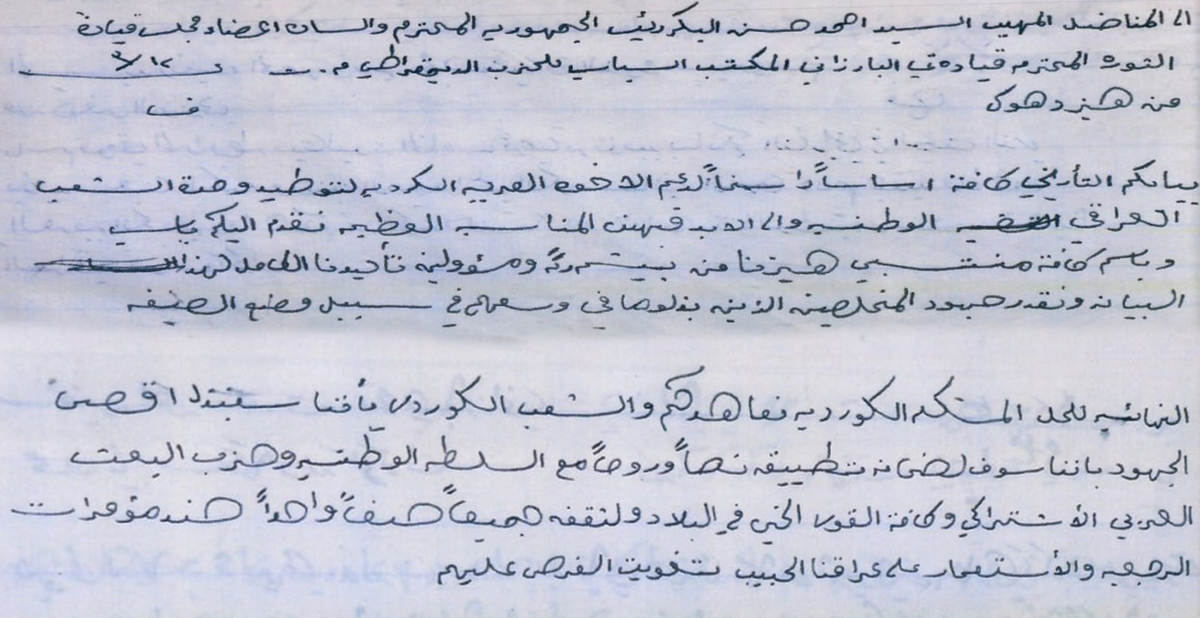 الى المناضل المهيب السيد احمد حسن البكر رئيس الجمهوريه المحترم والساده اعضاء مجلس قيادة
الثوره المحترم قيادة في البارزاني المكتب السياسي للحزب الديمقراطي
من هيز دهوك
بيانكم التأريخي كافة اساساً لدعيم الاخوه العربيه الكرديه لتوطيد وحدة الشعب
العراقي الوطنيه والى الابد فبهذه المناسبه العظيمه نتقدم اليكم باسمي
وباسم كافة منتسبي هيزنا من بيشمرگه ومسؤولين تأييدنا الكامل لهذا
البيان ونقدر جهود المخلصين الذين بذلوا ما في وسعهم في سبيل وضع الصيغه
النهائيه للحل المشكله الكورديه نعاهدكم والشعب الكوردي بأننا سنبذل اقصى
الجهود باننا سوف لضمان تطبيقه نصاً وروحاً مع السلطه الوطنيه وحزب البعث
العربي الأشتراكي وكافة القوى الخيره في البلاد ولنقفه جميعاً صفاً واحداً ضد مؤمرات
الرجعيه والأستعمار على عراقنا الحبيب بتفويت الفرص عليهم